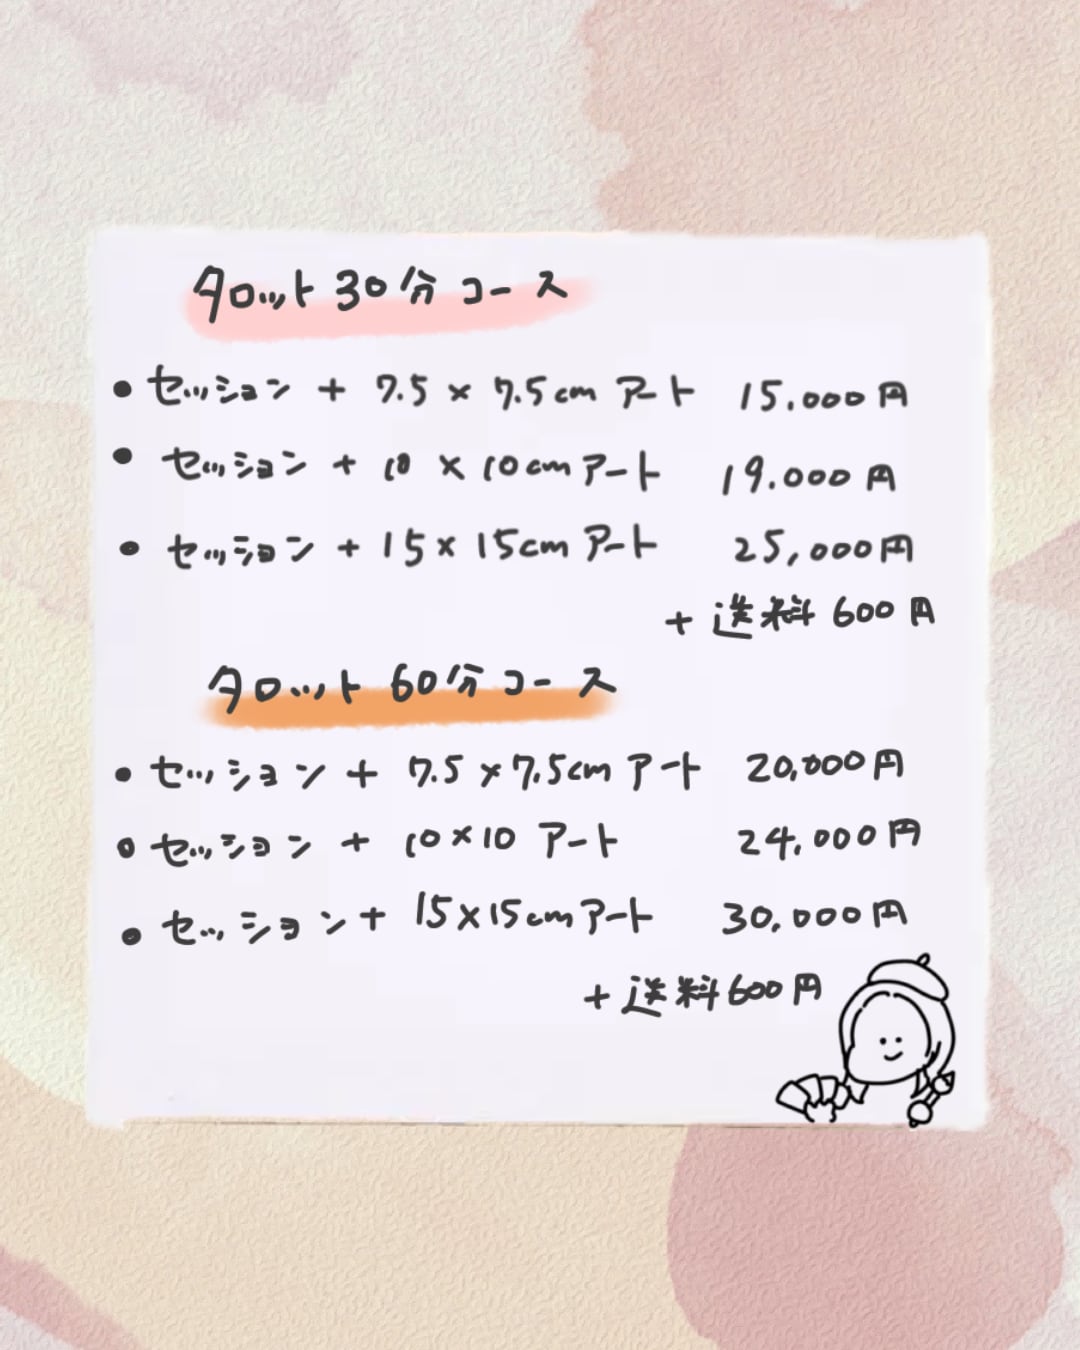 タロット30分コース
• セッション + 7.5 × 7.5cm アート 15.000円
• セッション + 10 × 10cm アート 19.000円
• セッション + 15 × 15cm アート 25,000円
+ 送料 600円
タロット 60分コース
• セッション + 7.5 × 7.5cm アート 20,000円
• セッション + 10×10 アート 24,000円
• セッション + 15×15cm アート 30,000円
+ 送料600円